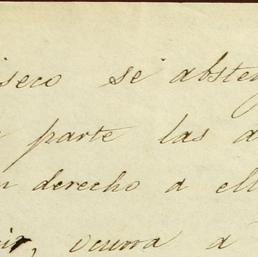 iseco se abste
parte las a
n derecho a ell
ir, ocurra a